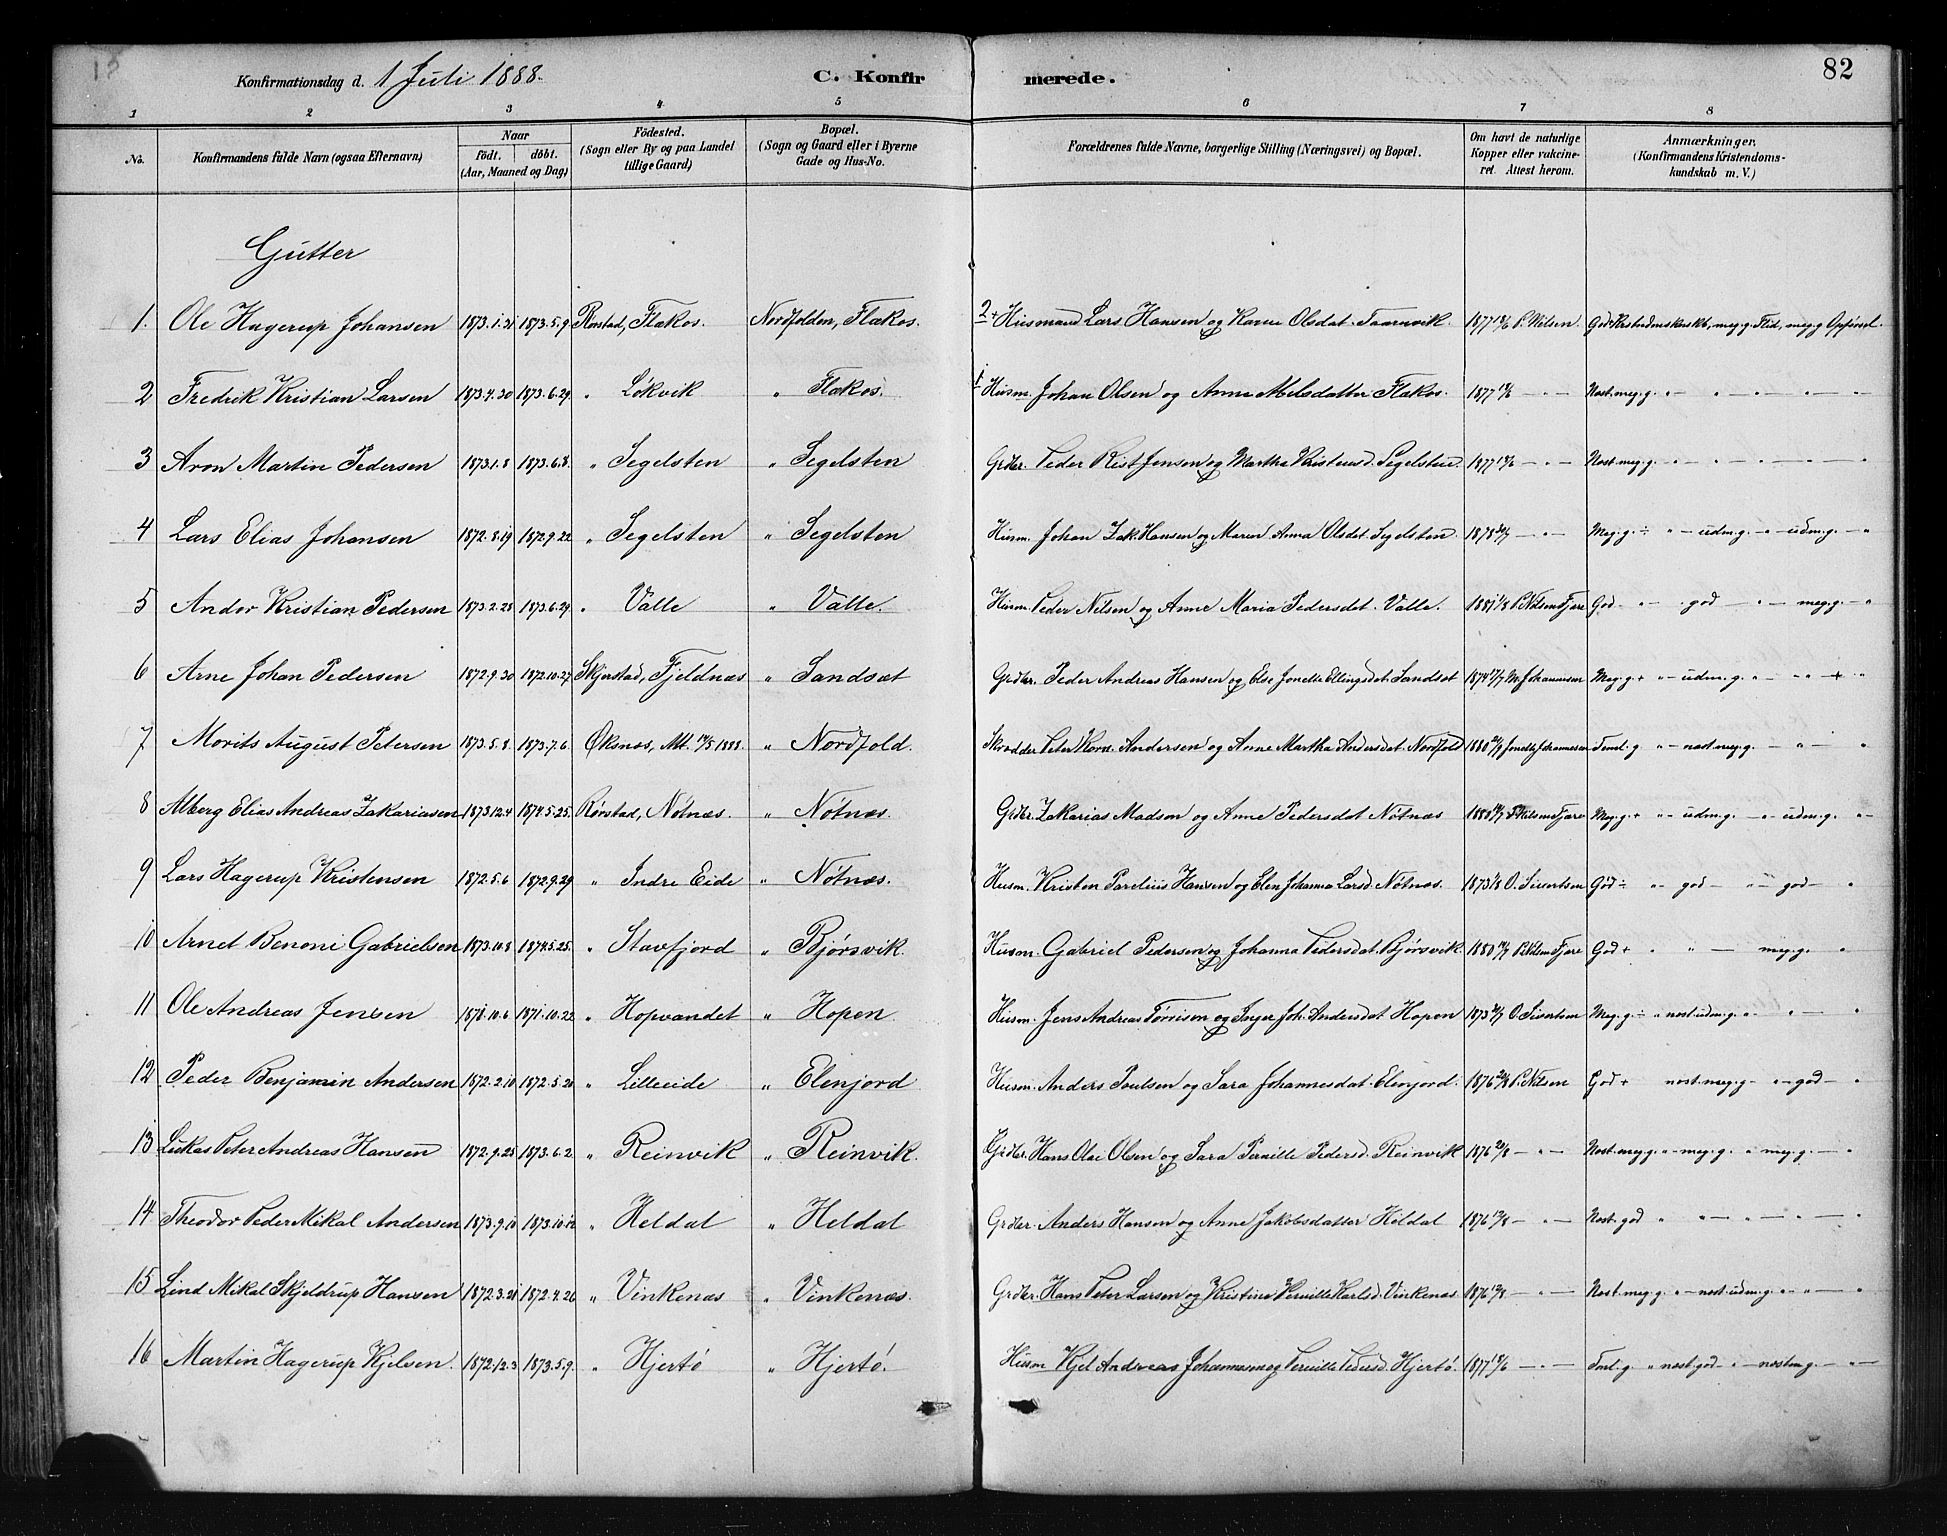 Konfirmationsdag d. 1 Juli 1888. C. Konfirmerede. 82
1 2 3 4 5 6 7 8
No. Konfirmandens fulde Navn (ogsaa Efternavn) Naar födt. döbt. (Aar, Maaned og Dag) Födested. (Sogn eller By og paa Landet tillige Gaard) Bopæl. (Sogn og Gaard eller i Byerne Gade og Hus-No. Forældrenes fulde Navne, borgerlige Stilling (Næringsvei) og Bopæl. Om havt de naturlige Kopper eller vakcineret. Attest herom. Anmærkninger. (Konfirmandens Kristendomskundskab m. V.)
Gutter
1. Ole Hagerup Johansen 1873.1.31 1873.5.9. Rørstad, Flækos. Nordfolden, Flækos. 2 Husmand Lars Hansen og Karen Olsdat. Taarnvik. 1877 P. Nilsen. God Kristendomskundsk., meg. g. Flid, meg. g. Opførsel.
2 Fredrik Kristian Larsen 1873.4.30 1873.6.29. " Løkvik " Flækos. 1 Husm. Johan Olsen og Anne Nilsdatter Flækos. 1877 — " — Nost. meg. g. " — " — " — " — "
3 Aron Martin Pedersen 1873.1.8 1873.6.8. " Segelsten " Segelsten Grdbr. Peder Rist Jensen og Martha Kristensd. Segelsten. 1877 — " — Nost. meg. g. " — " — " — " — "
4 Lars Elias Johansen 1872.8.19 1872.9.22 " Segelsten " Segelsten Husm. Johan Zak. Hansen og Maren Anna Olsdat. Segelsten. 1878 — " — Meg. g. ÷ " — udm. g. — " — udm. g. — "
5 Andor Kristian Pedersen 1873.2.28 1873.6.29. " Valle " Valle. Husm. Peder Nilsen og Anne Maria Pedersdat. Valle. 1881 1/8 P. Nilsen Fjære God — " — god — " — meg. g. — "
6 Arne Johan Pedersen 1872.9.30 1872.10.27 Skjerstad, Fjeldnæs " Sandsæt Grdbr. Peder Andreas Hansen og Else Jonette Ellingsdat. Sandsæt 1874 Johannesen Meg. g + " — udm. g. — " — " — + "
7 Morits August Petersen 1873.5.8. 1873.7.6. Øksnæs, Att. 14/5 1888. " Nordfold. Skrædder Peter Andersen og Anne Martha Andersdat. Nordfold 1880 Jonette Johannesen Teml. g " — nost. meg. g. — " — "
8 Alberg Elias Andreas Zakariasen 1873.12.4 1874.5.25. Rørstad, Nötnæs. " Nötnæs. Grdbr. Zakarias Madsen og Anne Pedersdat Nötnæs 1880 P. Nilsen Fjære Meg. g. + " — udm. g. — " — udm. g. "
9 Lars Hagerup Kristensen 1872.5.6 1872.9.29 " Indre Eide " Nötnæs. Husm. Kristen Parelius Hansen og Elen Johanna Larsd. Nötnæs. 1873 1/8 O. Sivertsen God ÷ " — god — " — god — "
10 Arnet Benoni Gabrielsen 1873.10.8 1874.5.25. " Stavfjord " Bjørsvik. Husm. Gabriel Pedersen og Johanna Pedersdat. Bjørsvik. 1880 P. Nilsen Fjære God + " " — meg. g. "
11 Ole Andreas Jensen 1871.10.22 " Hopvandet " Hopen Husm. Jens Andreas Tørrisen og Inger Joh. Andersdat Hopen 1873 O. Sivertsen Meg. g. ÷ " nost. udm. g. " — " — "
12 Peder Benjamin Andersen 1872.2.10 1872.5.20 " Lilleeide " Elenjord Husm. Anders Poulsen og Sara Johannesdat. Elenjord. 1876 P. Nilsen God + nost. meg. g — " — god — "
13 Lukas Peter Andreas Hansen 1872.9.25 1873.6.2. " Reinvik " Reinvik. Grdbr. Hans Olai Olsen og Sara Pernille Pedersd. Reinvik 1876 — " — Nost. meg. g. " — meg. g. " meg. g. — "
14 Theodor Peder Mikal Andersen 1873.9.10 1873.10.12 " Heldal " Heldal Grdbr. Anders Hansen og Anne Jakobsdatter Heldal 1876 — " — Nost. god " " — " — " — "
15 Lind Mikal Skjeldrup Hansen 1872.3.21 1872.4.26 " Vinkenæs " Vinkenæs. Grdbr. Hans Peter Larsen og Kristine Pernille Karlsd. Vinkenæs 1876 — " — Nost. meg. g. " — nost. udm. g. " — " — "
16 Martin Hagerup Kjelsen. 1872.12.3 1873.5.9. " Hjertö " Hjertö. Husm Kjel Andreas Johannesen og Pernille Pedersd. Hjertö. 1877 — " — Teml. g. " nost. god — " — nost. m. g. — " —